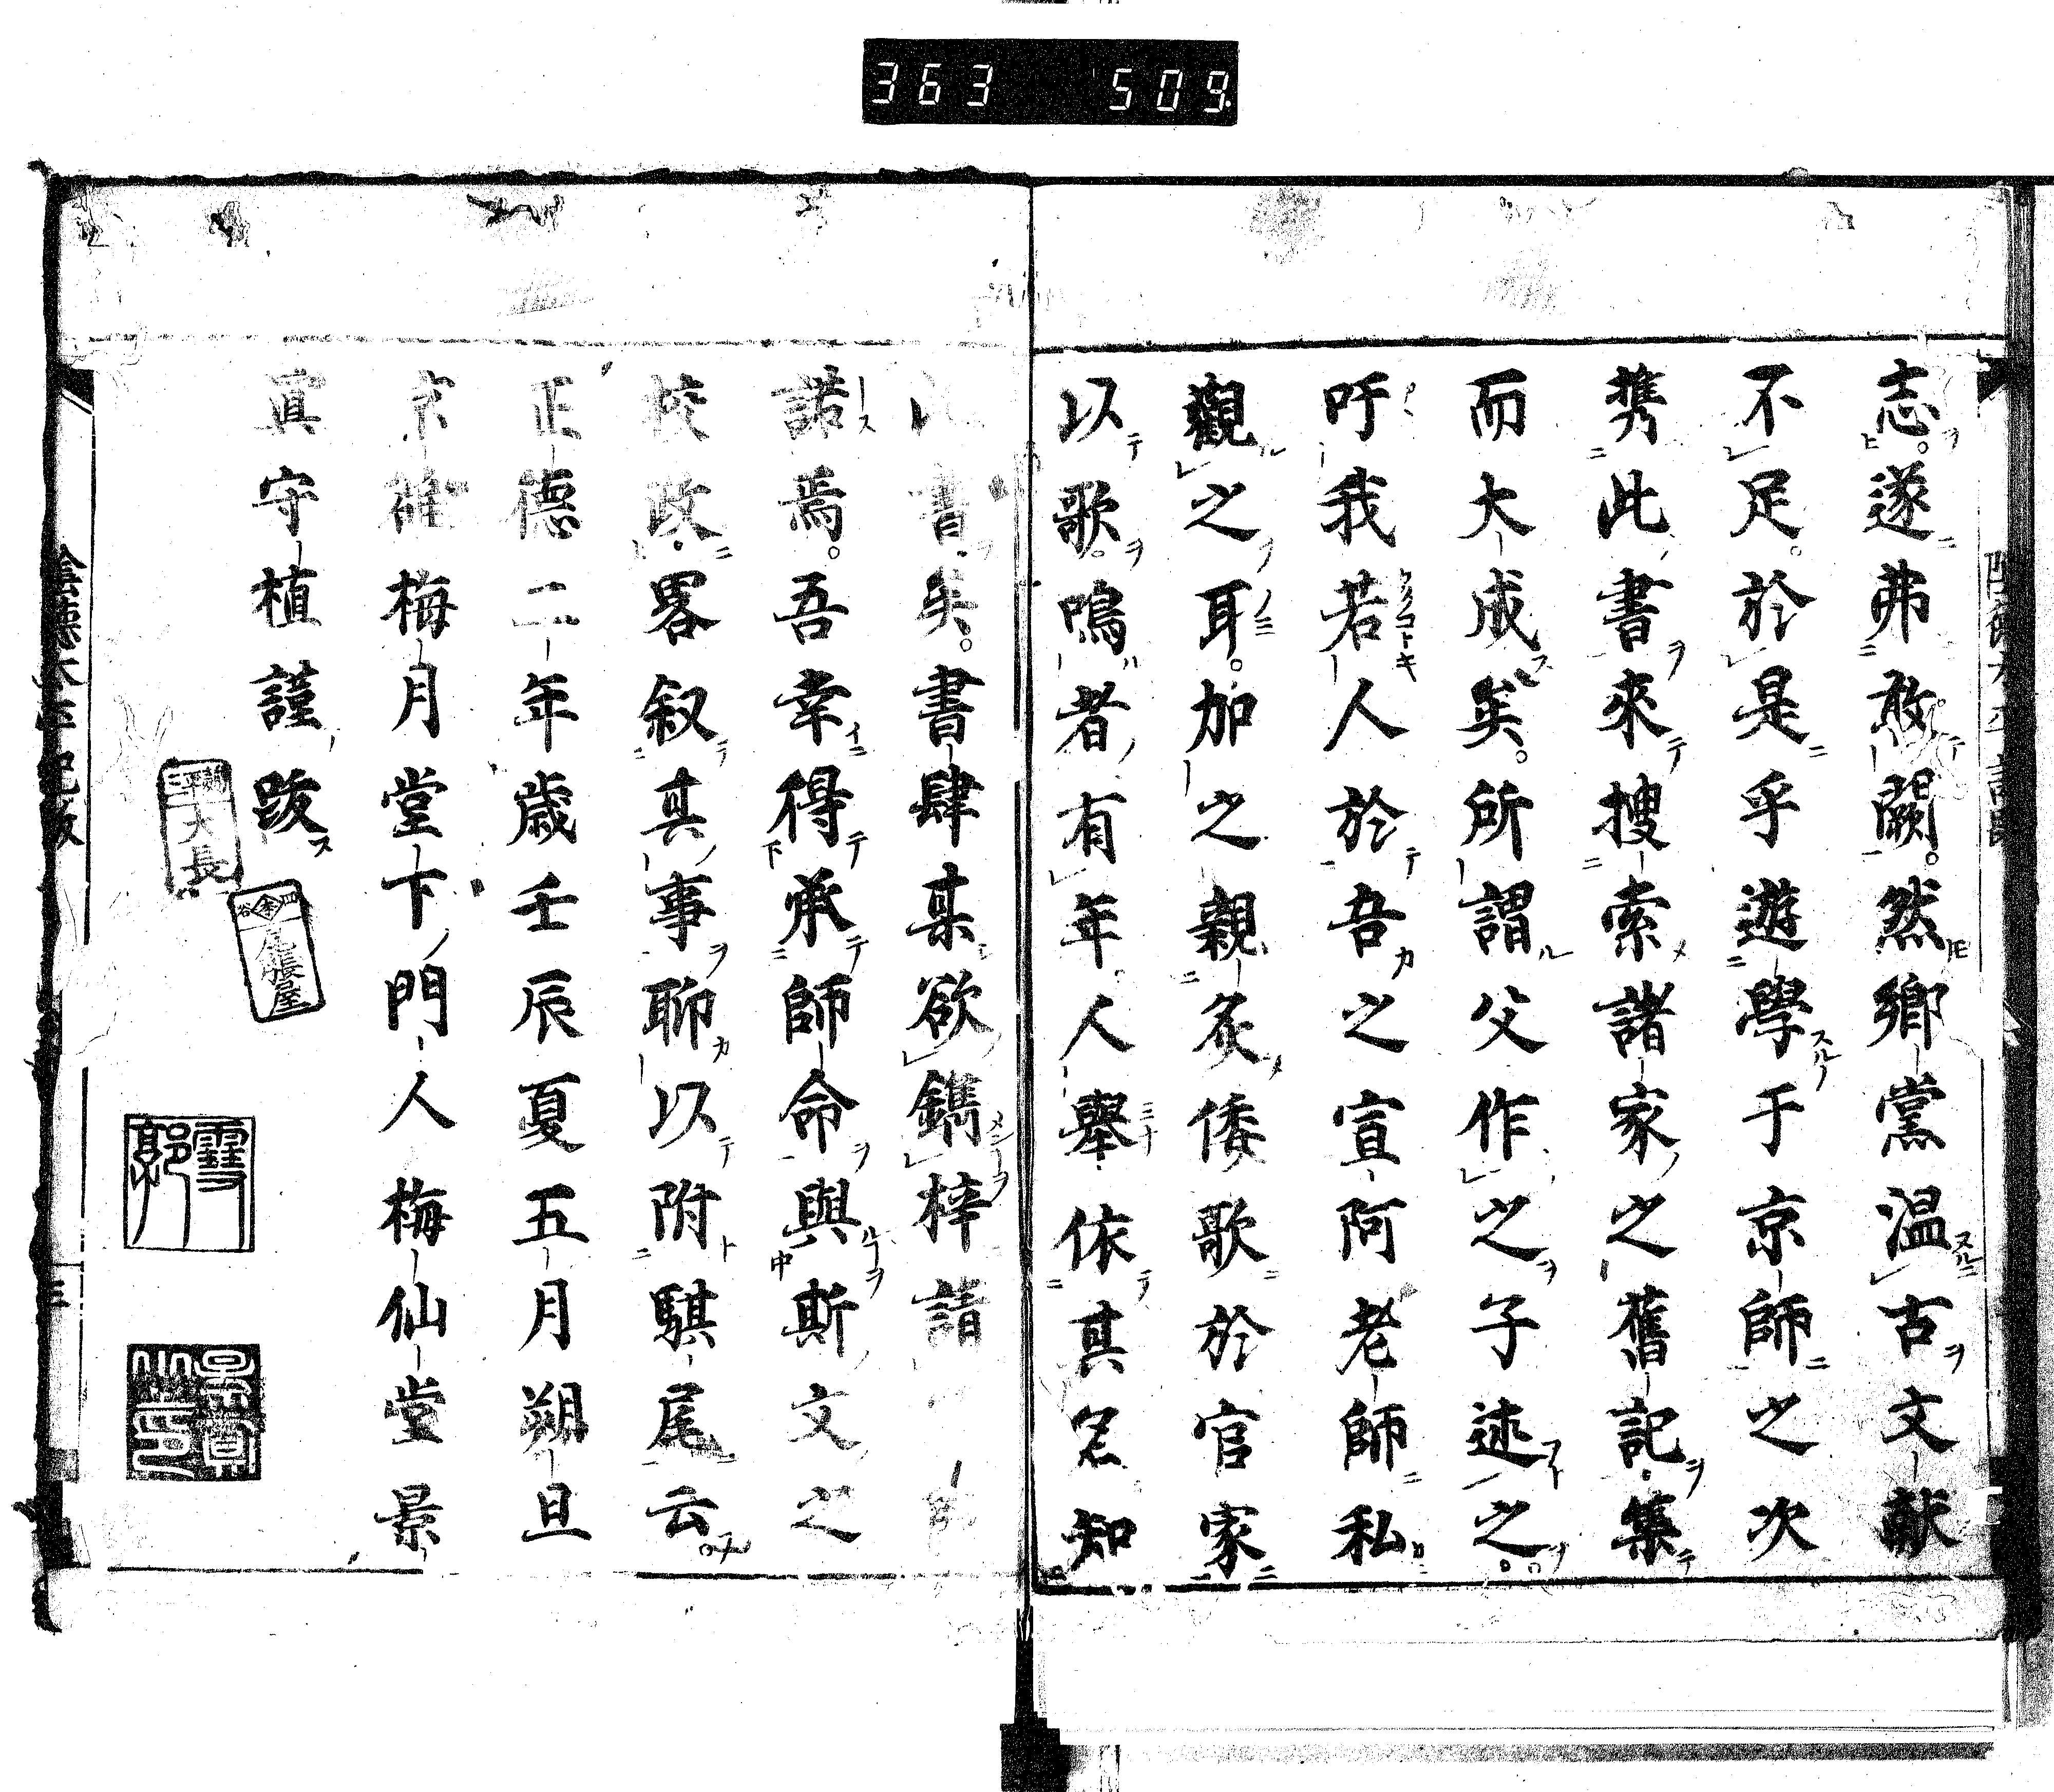 363 509
志遂弗敢闕然鄉黨温古文献
不足於是乎遊學于京師之次
携此書來搜索諸家之舊記集
而大成矣所謂父作之子述之
吁我若人於吾之宣阿老師私
觀之耳加之親炙倭歌於官家
以歌鳴者有年人舉依其名知
書矣書肆某欲鐫梓請
諾焉吾幸得承師命與斯文之
校改畧叙其事聊以附騏尾云
正德二年歳壬辰夏五月朔旦
京 梅月堂下門人梅仙堂景
守植謹跋
大長
陰德太平記跋
三